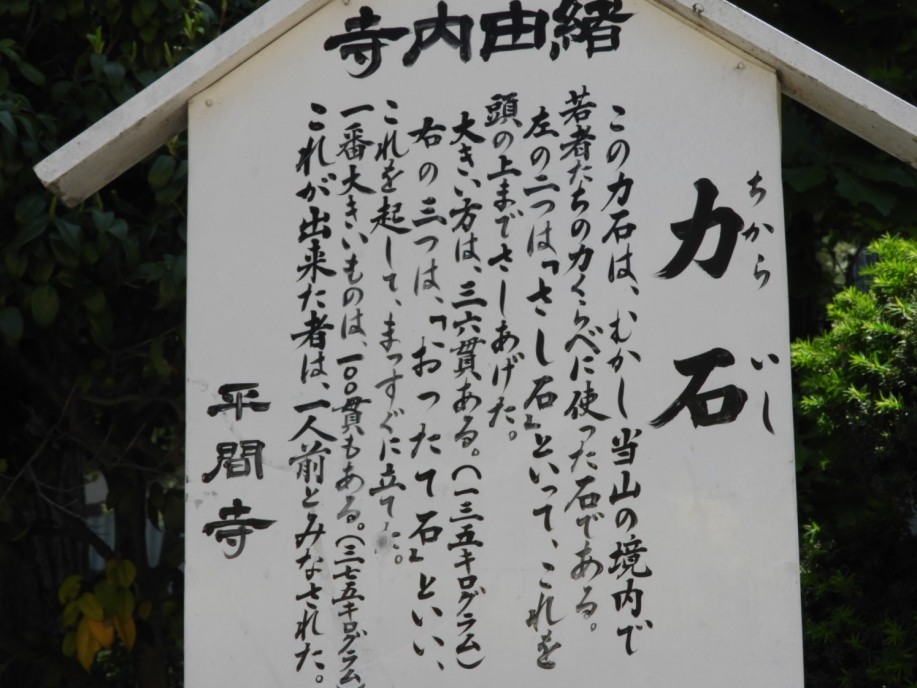 寺内由緒
ちから いし
力石
この力石は、むかし当山の境内で
若者たちの力くらべに使った石である。
左の二つは「さし石」といって、これを
頭の上までさしあげた。
大きい方は、三六貫ある。（一三五キログラム）
右の三つは、「おったて石」といい、
これを起して、まっすぐに立てた。
一番大きいものは、一〇〇貫もある。（三七五キログラム）
これが出来た者は、一人前とみなされた。
平間寺